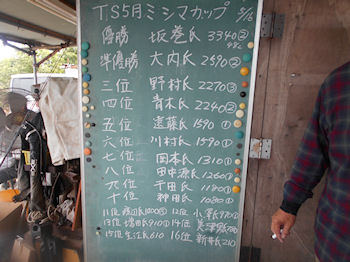 TS5月ミシマカップ 5/16
優勝 坂巻氏 3340②
準優勝 大内氏 2590②
三位 野村氏 2270③
四位 青木氏 2240②
五位 遠藤氏 1590①
六位 川村氏 1570①
七位 岡本氏 1310①
八位 田中源氏 1260
九位 千田氏 1190①
十位 神田氏 1030①
11位 1000 12位 小峯氏970①
13位 910① 14位
15位 610 16位 新井氏210